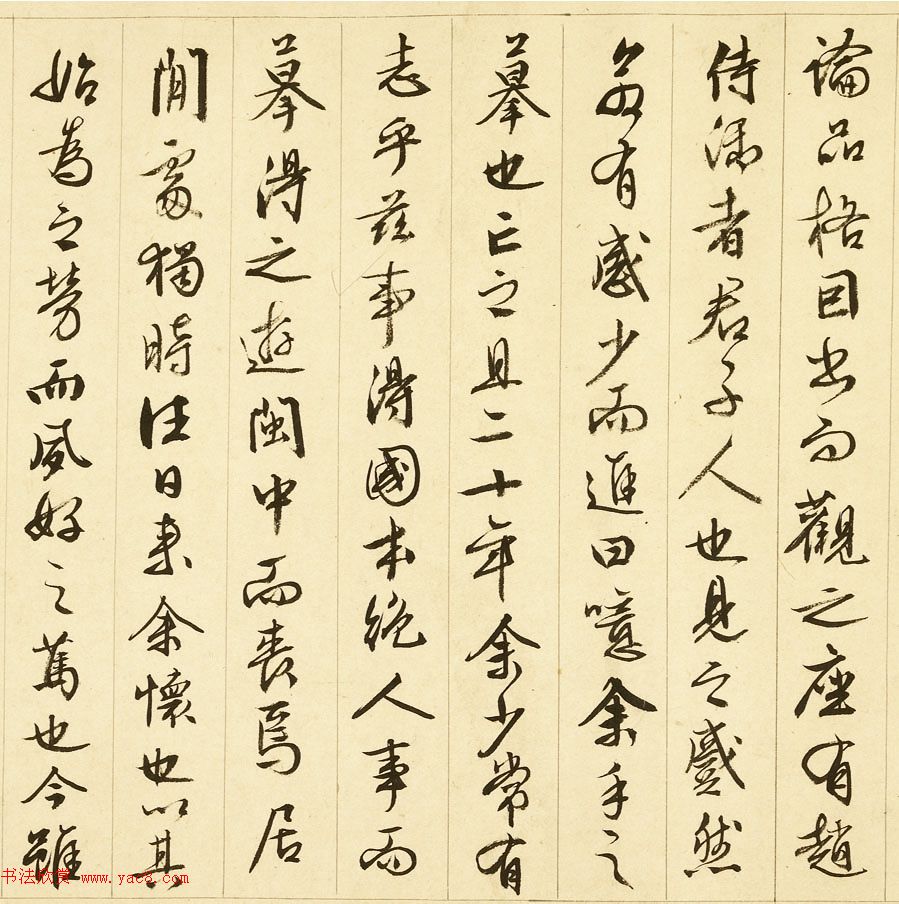 論品格因出而觀之座有趙
侍御者君子人也見之戚然
若有感少而進曰噫余手之
摹也亡之且二十年余少常有
志乎茲事得國本絕人事而
摹得之遊閩中而喪焉居
閒處獨時往日來余懷也以其
始為之勞而夙好之篤也今雖
书法欣赏 www.yac8.com